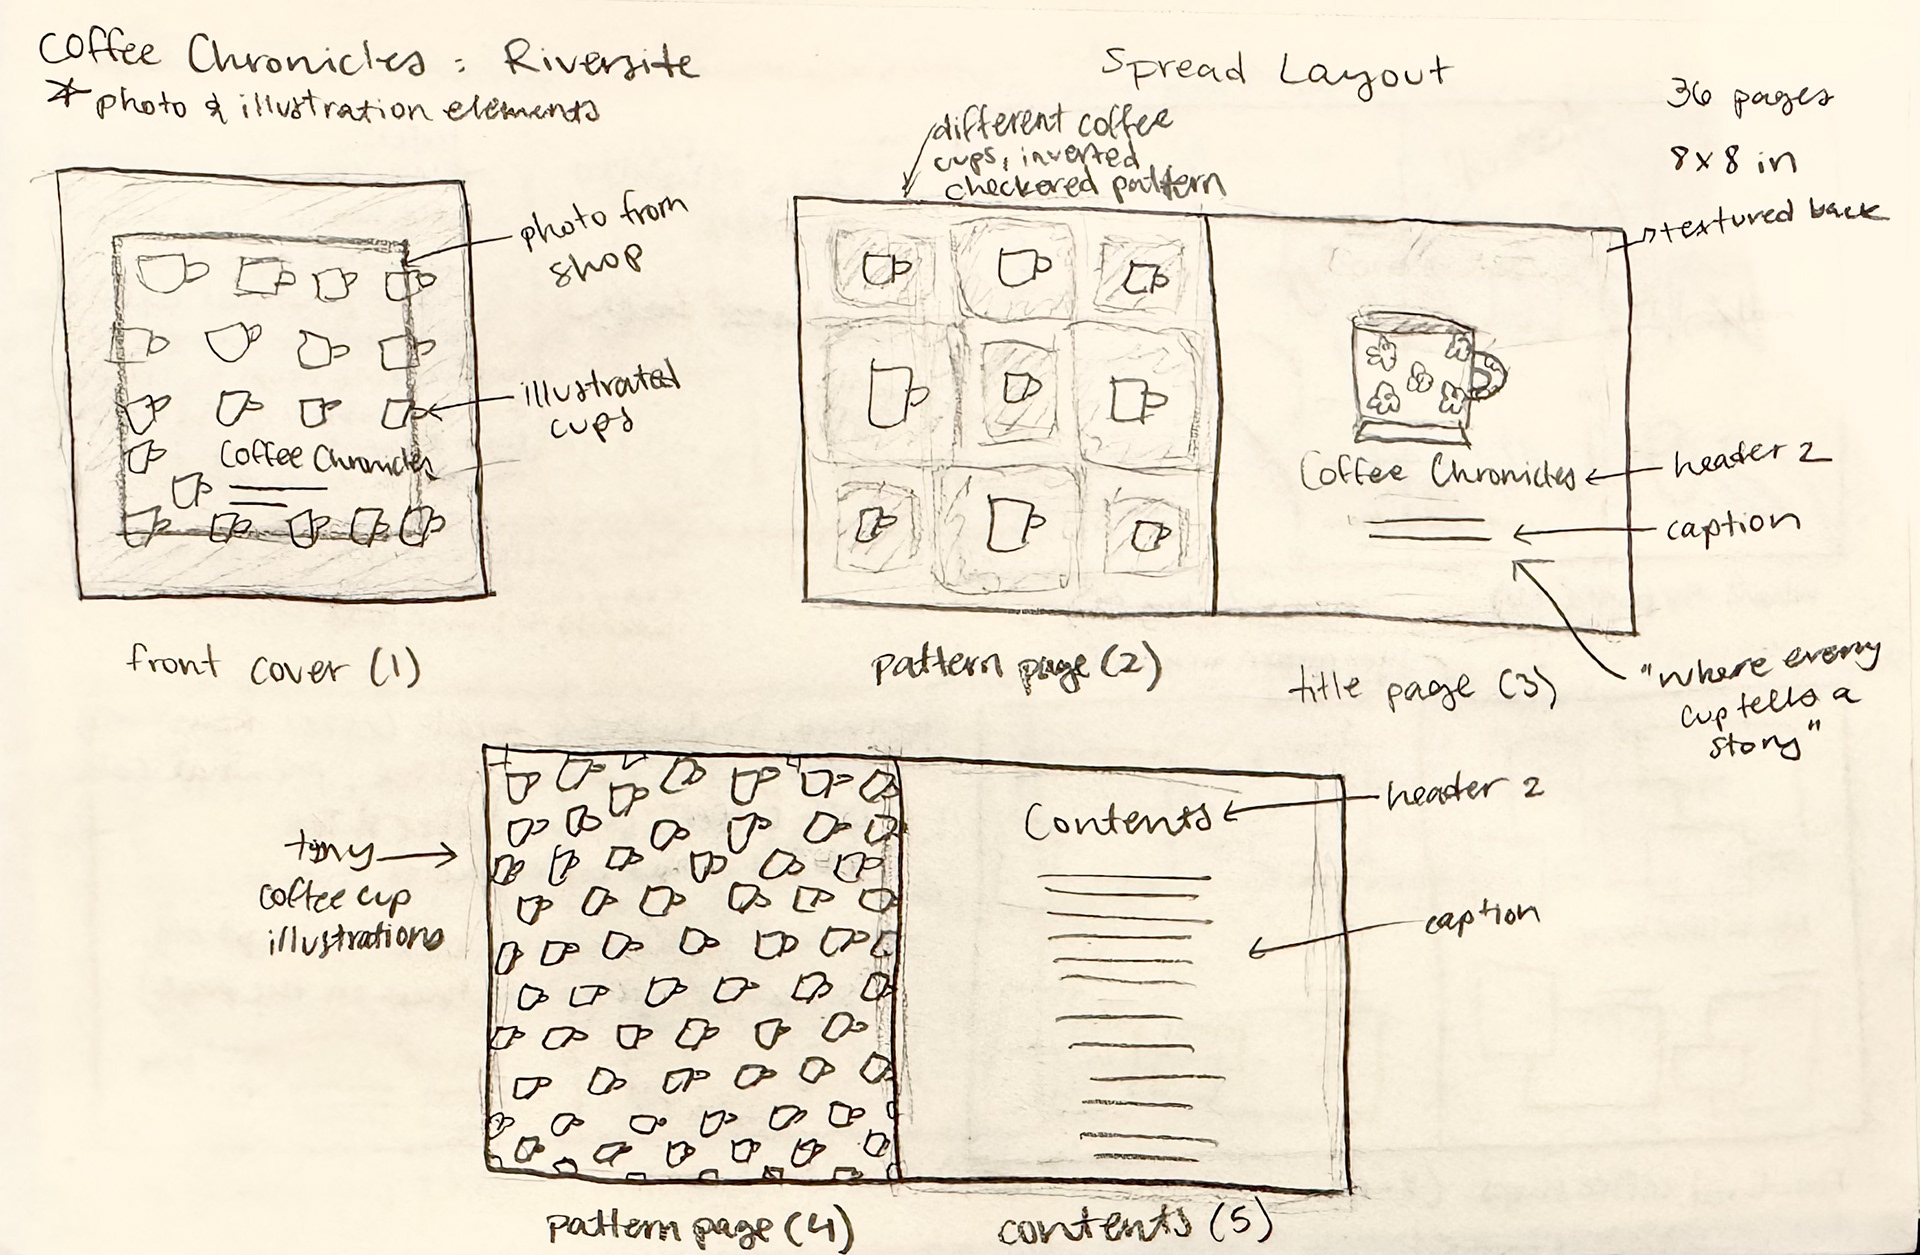 Coffee Chronicles : Riversite
* photo & illustration elements
Spread Layout
36 pages
8x8 in
textured back
different coffee
cups, inverted
checkered pattern
photo from
shop
illustrated
cups
Coffee Chronicles
front cover (1)
Coffee Chronicles
header 2
caption
"where every
cup tells a
story"
pattern page (2)
title page (3)
tiny
coffee cup
illustrations
Contents
header 2
caption
pattern page (4)
contents (5)